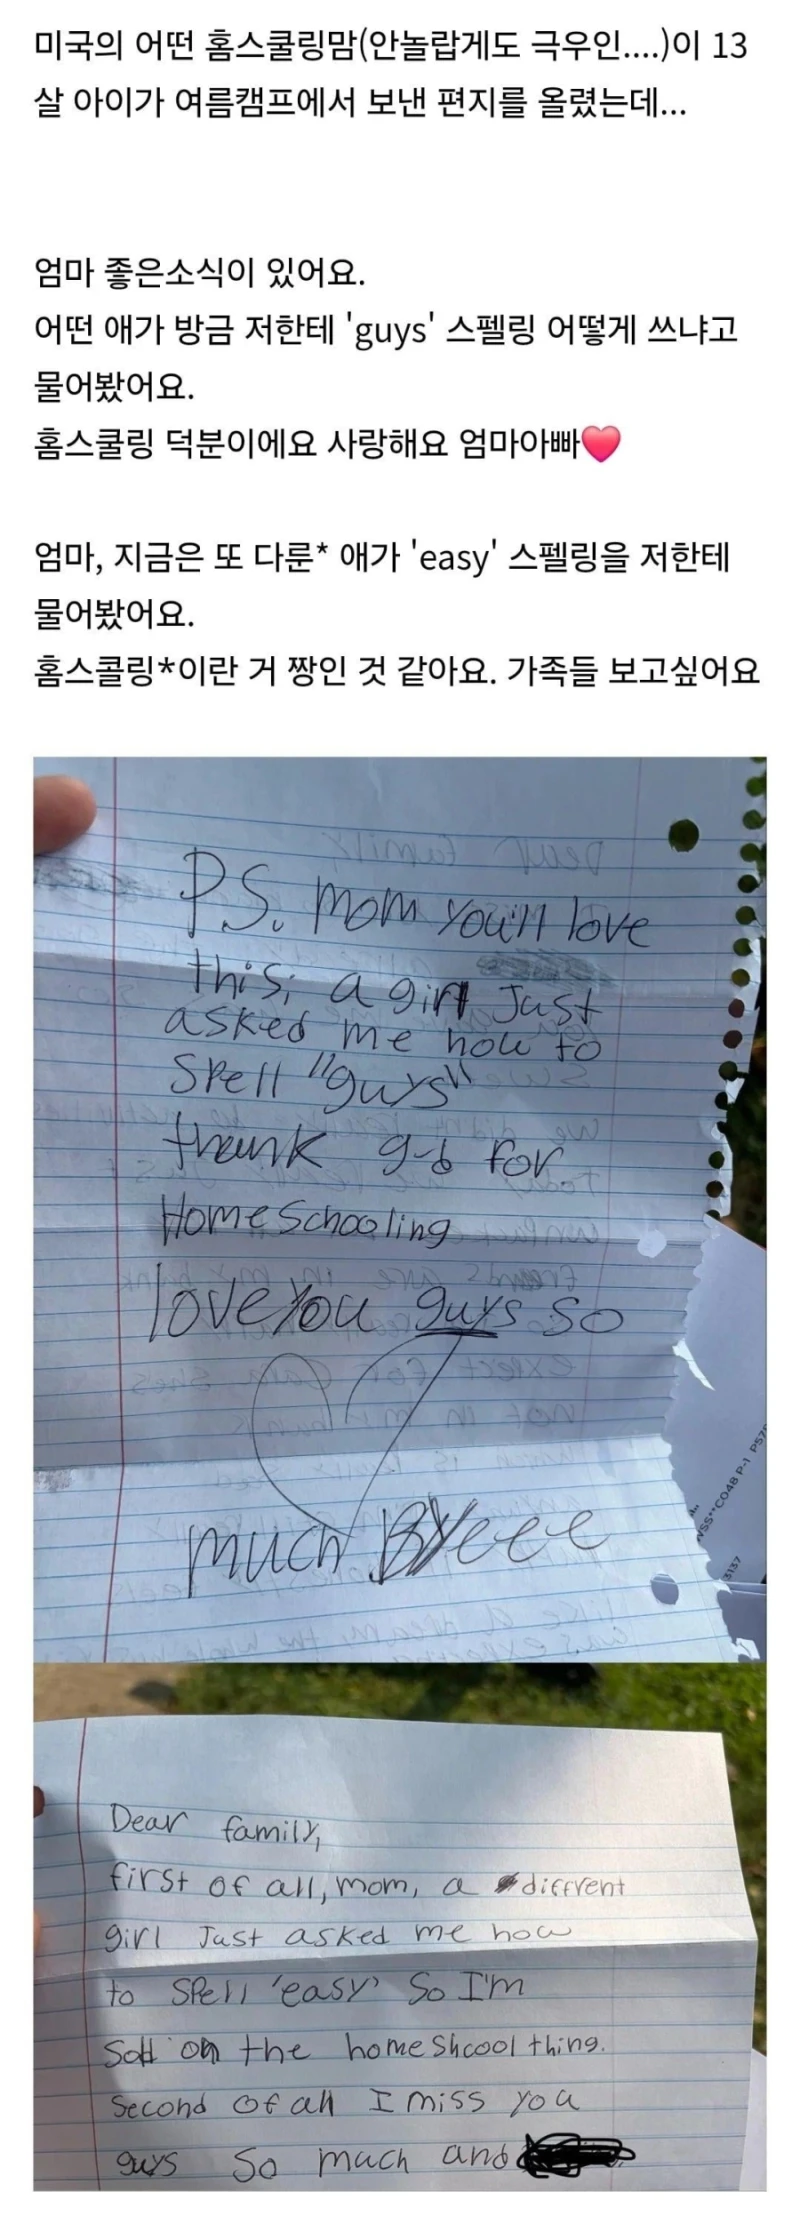 미국의 어떤 홈스쿨링맘(안놀랍게도 극우인....)이 13
살 아이가 여름캠프에서 보낸 편지를 올렸는데...
엄마 좋은소식이 있어요.
어떤 애가 방금 저한테 'guys' 스펠링 어떻게 쓰냐고
물어봤어요.
홈스쿨링 덕분이에요 사랑해요 엄마아빠❤️
엄마, 지금은 또 다룬* 애가 'easy' 스펠링을 저한테
물어봤어요.
홈스콜링*이란 거 짱인 것 같아요. 가족들 보고싶어요
P.S. mom you'll love
this, a girl Just
asked me how to
spell "guys"
thank g-d for
HomeSchooling
love you guys so
much Byeee
Dear family,
first of all, mom, a diffrent
girl Just asked me how
to spell 'easy' So I'm
Sold on the homeshcool thing.
Second of all I miss you
guys so much and